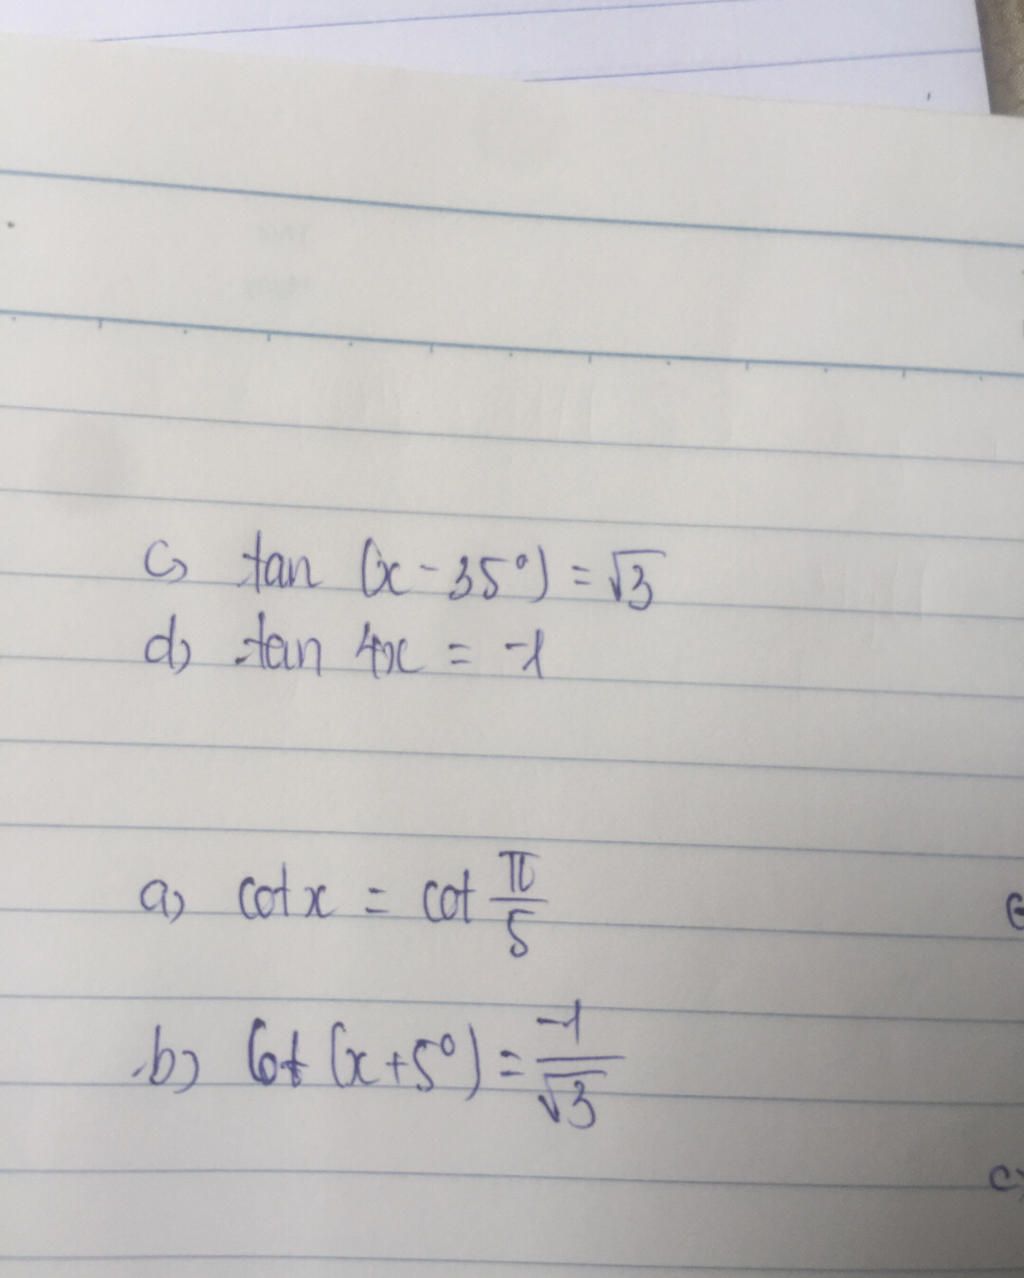 c) tan (x - 35°) = √3
d) tan 4x = -1
a) cot x = cot π/5
b) Cot (x + 5°) = -1/√3
c)